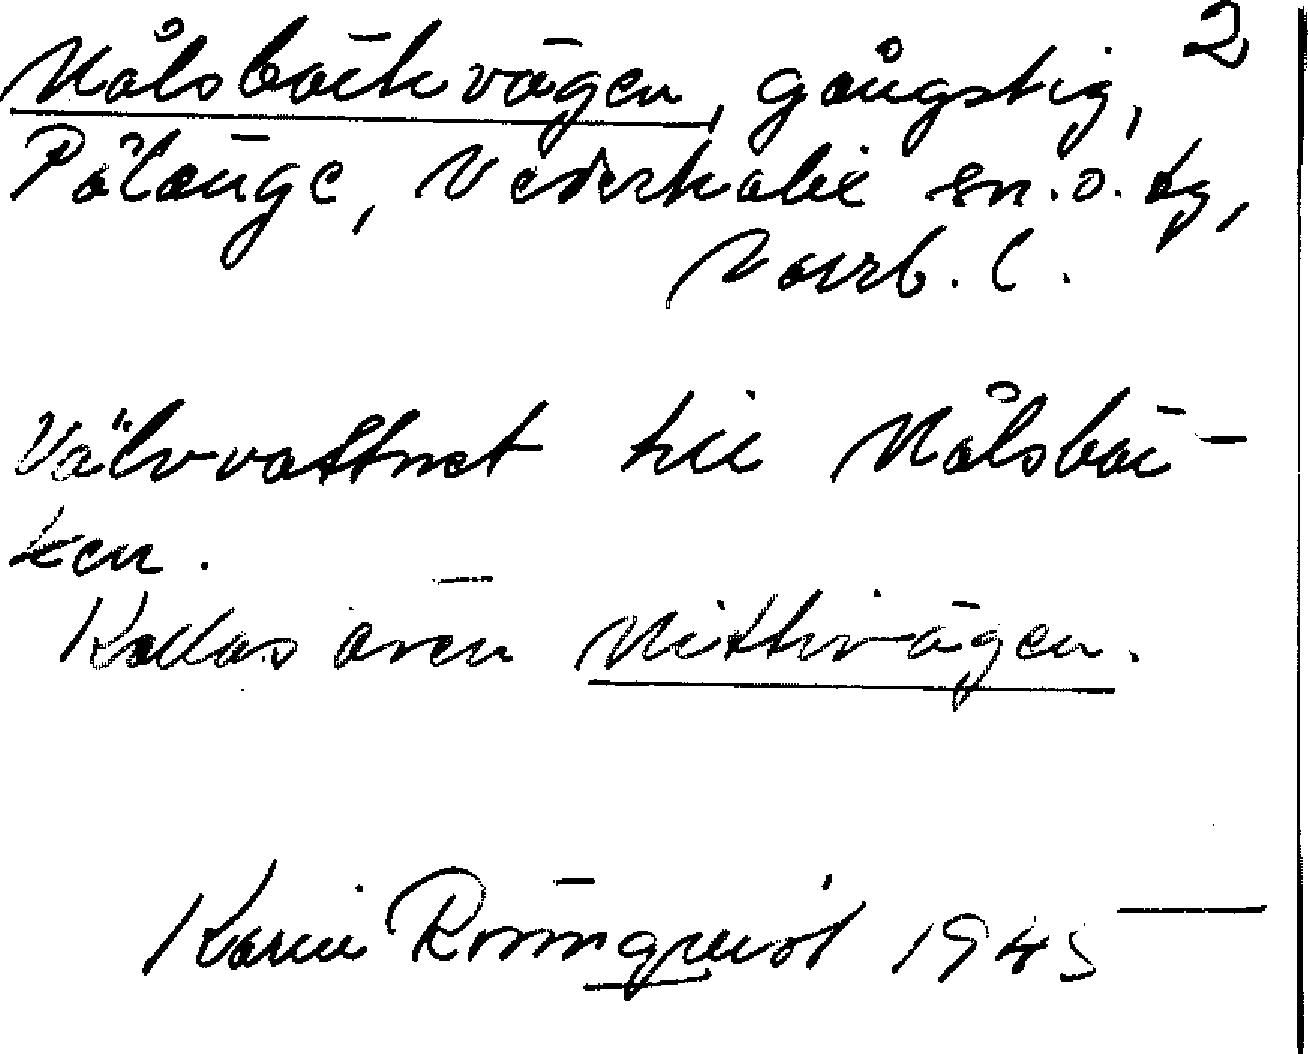 2
Målsbäckvägen, gångstig,
Pålänge, Nederkalix sn. o. tg,
Norrb. l.
Välvvattnet till Målsbäc-
ken.
Kallas även Mittivägen.
Karin Rönnqvist 1945